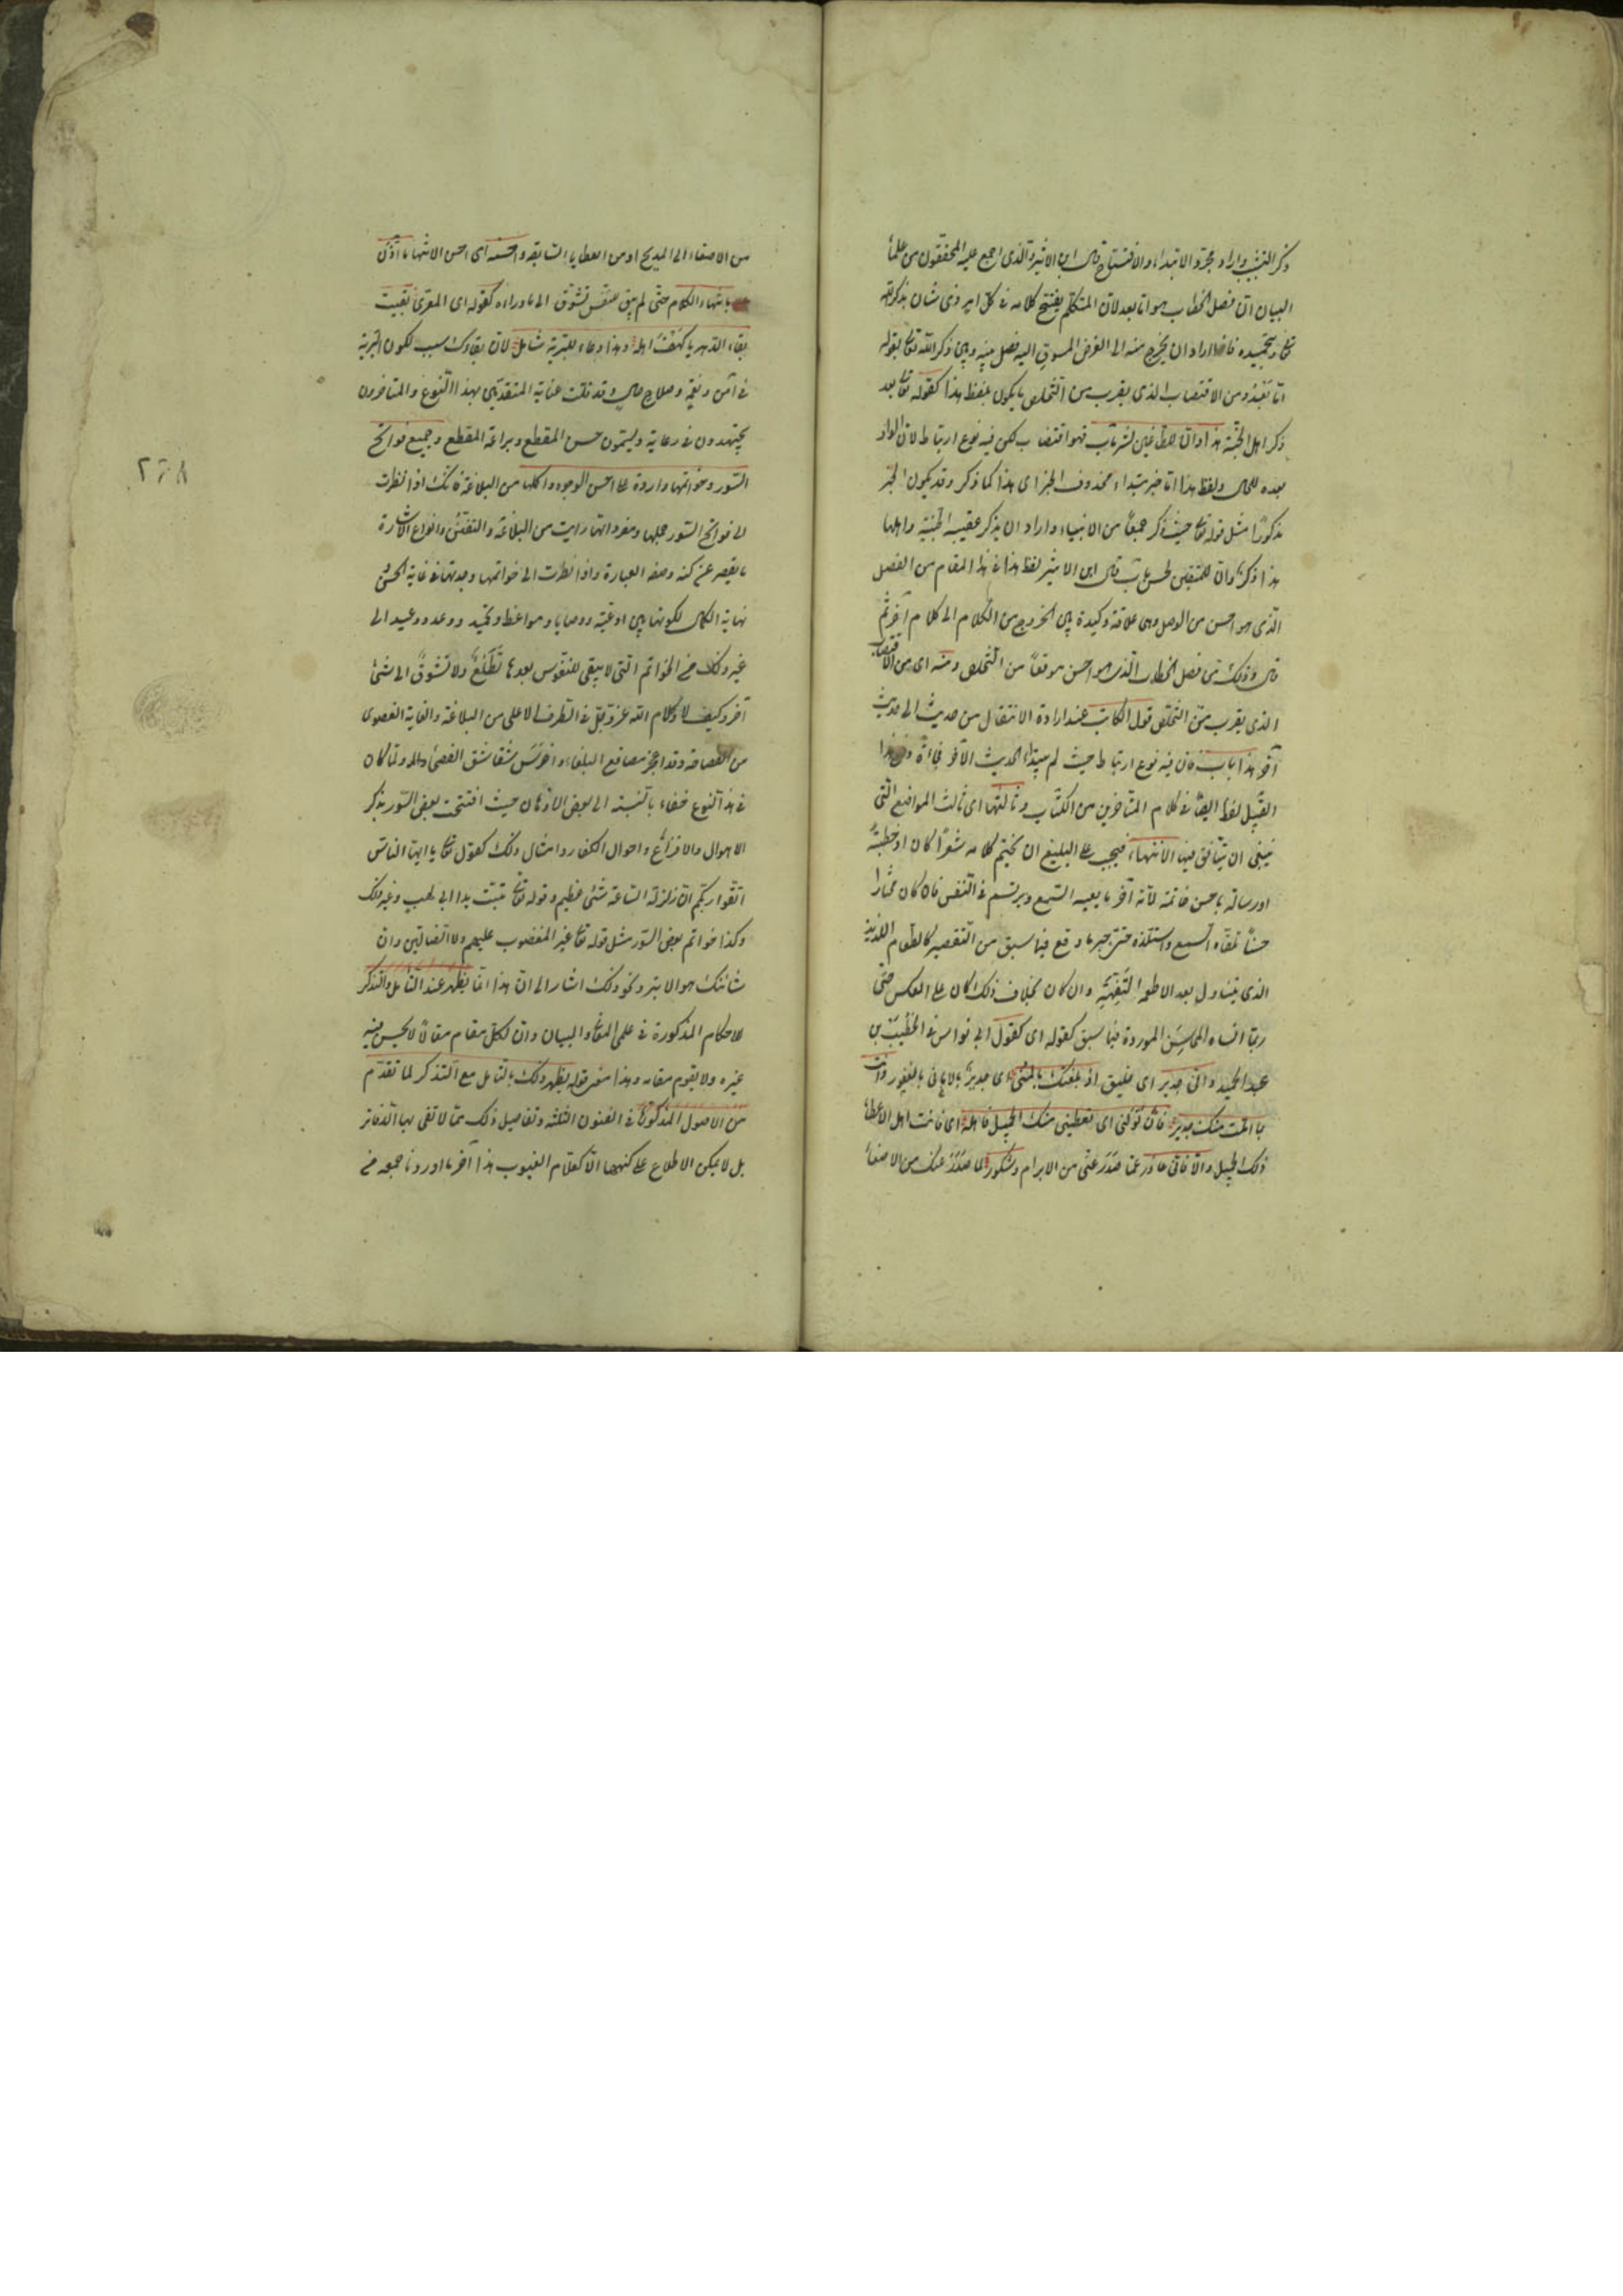 ذكر التشبيب واراد مجرد الابتداء والافتتاح قال ابن الاثير والذى اجمع عليه المحققون من علماء
البيان ان فصل الخطاب هو اما بعد لان المتكلم يفتتح كلامه فى كل امر ذى شان بذكر الله
تعا وتحميده فاذا اراد ان يخرج منه الى الغرض المسوق اليه فصل بينه وبين ذكر الله تعا بقوله
اما بعد ومن الاقتضاب الذى يقرب من التخلص ما يكون بلفظ هذا كقوله تعا بعد
ذكر اهل الجنة هذا وان للطاغين لشر مآب فهو اقتضاب لكن فيه نوع ارتباط لان الواو
بعده للحال ولفظ هذا اما خبر مبتداء محذوف الخبر اى هذا كما ذكر وقد يكون الخبر
مذكورًا مثل قوله تعا حيث ذكر جمعًا من الانبياء واراد ان يذكر عقيبه الجنة واهلها
هذا ذكر وان للمتقين لحسن مآب قال ابن الاثير لفظ هذا فى هذا المقام من الفصل
الذى هو احسن من الوصل وهى علاقة وكيدة بين الخروج من الكلام الى كلام آخر ثم
قال وذلك من فصل الخطاب الذى هو احسن موقعًا من التخلص ومنه اى من الاقتضاب
الذى يقرب من التخلص قول الكاتب عند ارادة الانتقال من حديث الى حديث
آخر هذا باب فان فيه نوع ارتباط حيث لم يبتداء الحديث الآخر فجاءة ومن هذا
القبيل لفظ ايضًا فى كلام المتاخرين من الكتاب وثالثها اى ثالث المواضع التى
ينبغى ان يتانق فيها الانتهاء فيجب على البليغ ان يختم كلامه شعرًا كان او خطبةً
او رسالة باحسن خاتمة لانه آخر ما يعيه السمع ويرتسم فى النفس فان كان مختارا
حسنًا تلقاه السمع واستلذه حتى جبر ما وقع فيما سبق من التقصير كالطعام اللذيذ
الذى يتناول بعد الاطعمة التفهة وان كان بخلاف ذلك كان على العكس حتى
ربما انساه المحاسن الموردة فيما سبق كقوله اى كقول ابى نواس فى الخطيب بن
عبد الحميد وانى جدير اى خليق اذ بلغتك بالمنى اى جدير بالامانى بالفوز وانت
بما املت منك جدير فان تولنى اى تعطينى منك الجميل فاهله اى فانت اهل لاعطاء
ذلك الجميل والا فانى عاذر عما صدر عنى من الابرام وشكور لما صدر عنك من الاصغاء
من الاصغاء الى المديح او من العطايا السابقة واحسنه اى احسن الانتهاء ما آذن
بانتهاء الكلام حتى لم يبق للنفس تشوق الى ما وراءه كقوله اى المعرى بقيت
بقاء الدهر يا كهف اهله وهذا دعاء للبرية شامل لان بقاؤك سبب لكون البرية
فى امن ونعمة وصلاح حال وقد قلت عناية المتقدمين بهذا النوع والمتاخرون
يجتهدون فى رعايته ويسمون حسن المقطع وبراعة المقطع وجميع فواتح
السور وخواتمها واردة على احسن الوجوه واكملها من البلاغة فانك اذا نظرت
الى فواتح السور جملها ومفرداتها رايت من البلاغة والتفنن وانواع الاشارة
ما يقصر عن كنه وصفه العبارة واذا نظرت الى خواتمها وجدتها فى غاية الحسن و
نهاية الكمال لكونها بين ادعية ووصايا ومواعظ وتحميد ووعد ووعيد الى
غير ذلك من الخواتم التى لا يبقى للنفوس بعدها تطلع ولا تشوق الى شئ
آخر وكيف لا وكلام الله عز وجل فى الطرف الاعلى من البلاغة والغاية القصوى
من الفصاحة وقد اعجز مصاقع البلغاء واخرس شقاشق الفصحاء ولما كان
فى هذا النوع خفاء بالنسبة الى بعض الاذهان حيث افتتحت بعض السور بذكر
الاهوال والافزاع واحوال الكفار وامثال ذلك كقوله تعا يا ايها الناس
اتقوا ربكم ان زلزلة الساعة شئ عظيم وقوله تعا تبت يدا ابى لهب وغير ذلك
وكذا خواتم بعض السور مثل قوله تعا غير المغضوب عليهم ولا الضالين وان
شانئك هو الابتر ونحو ذلك اشار الى ان هذا انما يظهر عند التامل والتذكر
للاحكام المذكورة فى علمى المعانى والبيان وان لكل مقام مقالًا لا يحسن فيه
غيره ولا يقوم مقامه وهذا معنى قوله يظهر ذلك بالتامل مع التذكر لما تقدم
من الاصول المذكورة فى الفنون الثلثة وتفاصيل ذلك مما لا تفى بها الدفاتر
بل لا يمكن الاطلاع على كنهها الا لعلام الغيوب هذا آخر ما اوردنا جمعه من
٢٦٨